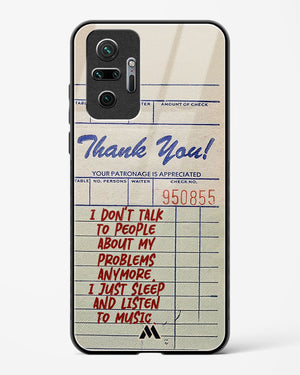 TABLE
WAITER
AMOUNT OF CHECK
Thank You!
YOUR PATRONAGE IS APPRECIATED
TABLE NO. PERSONS WAITER CHECK NO.
950855
I DON'T TALK
TO PEOPLE
ABOUT MY
PROBLEMS
ANYMORE,
I JUST SLEEP
AND LISTEN
TO MUSIC